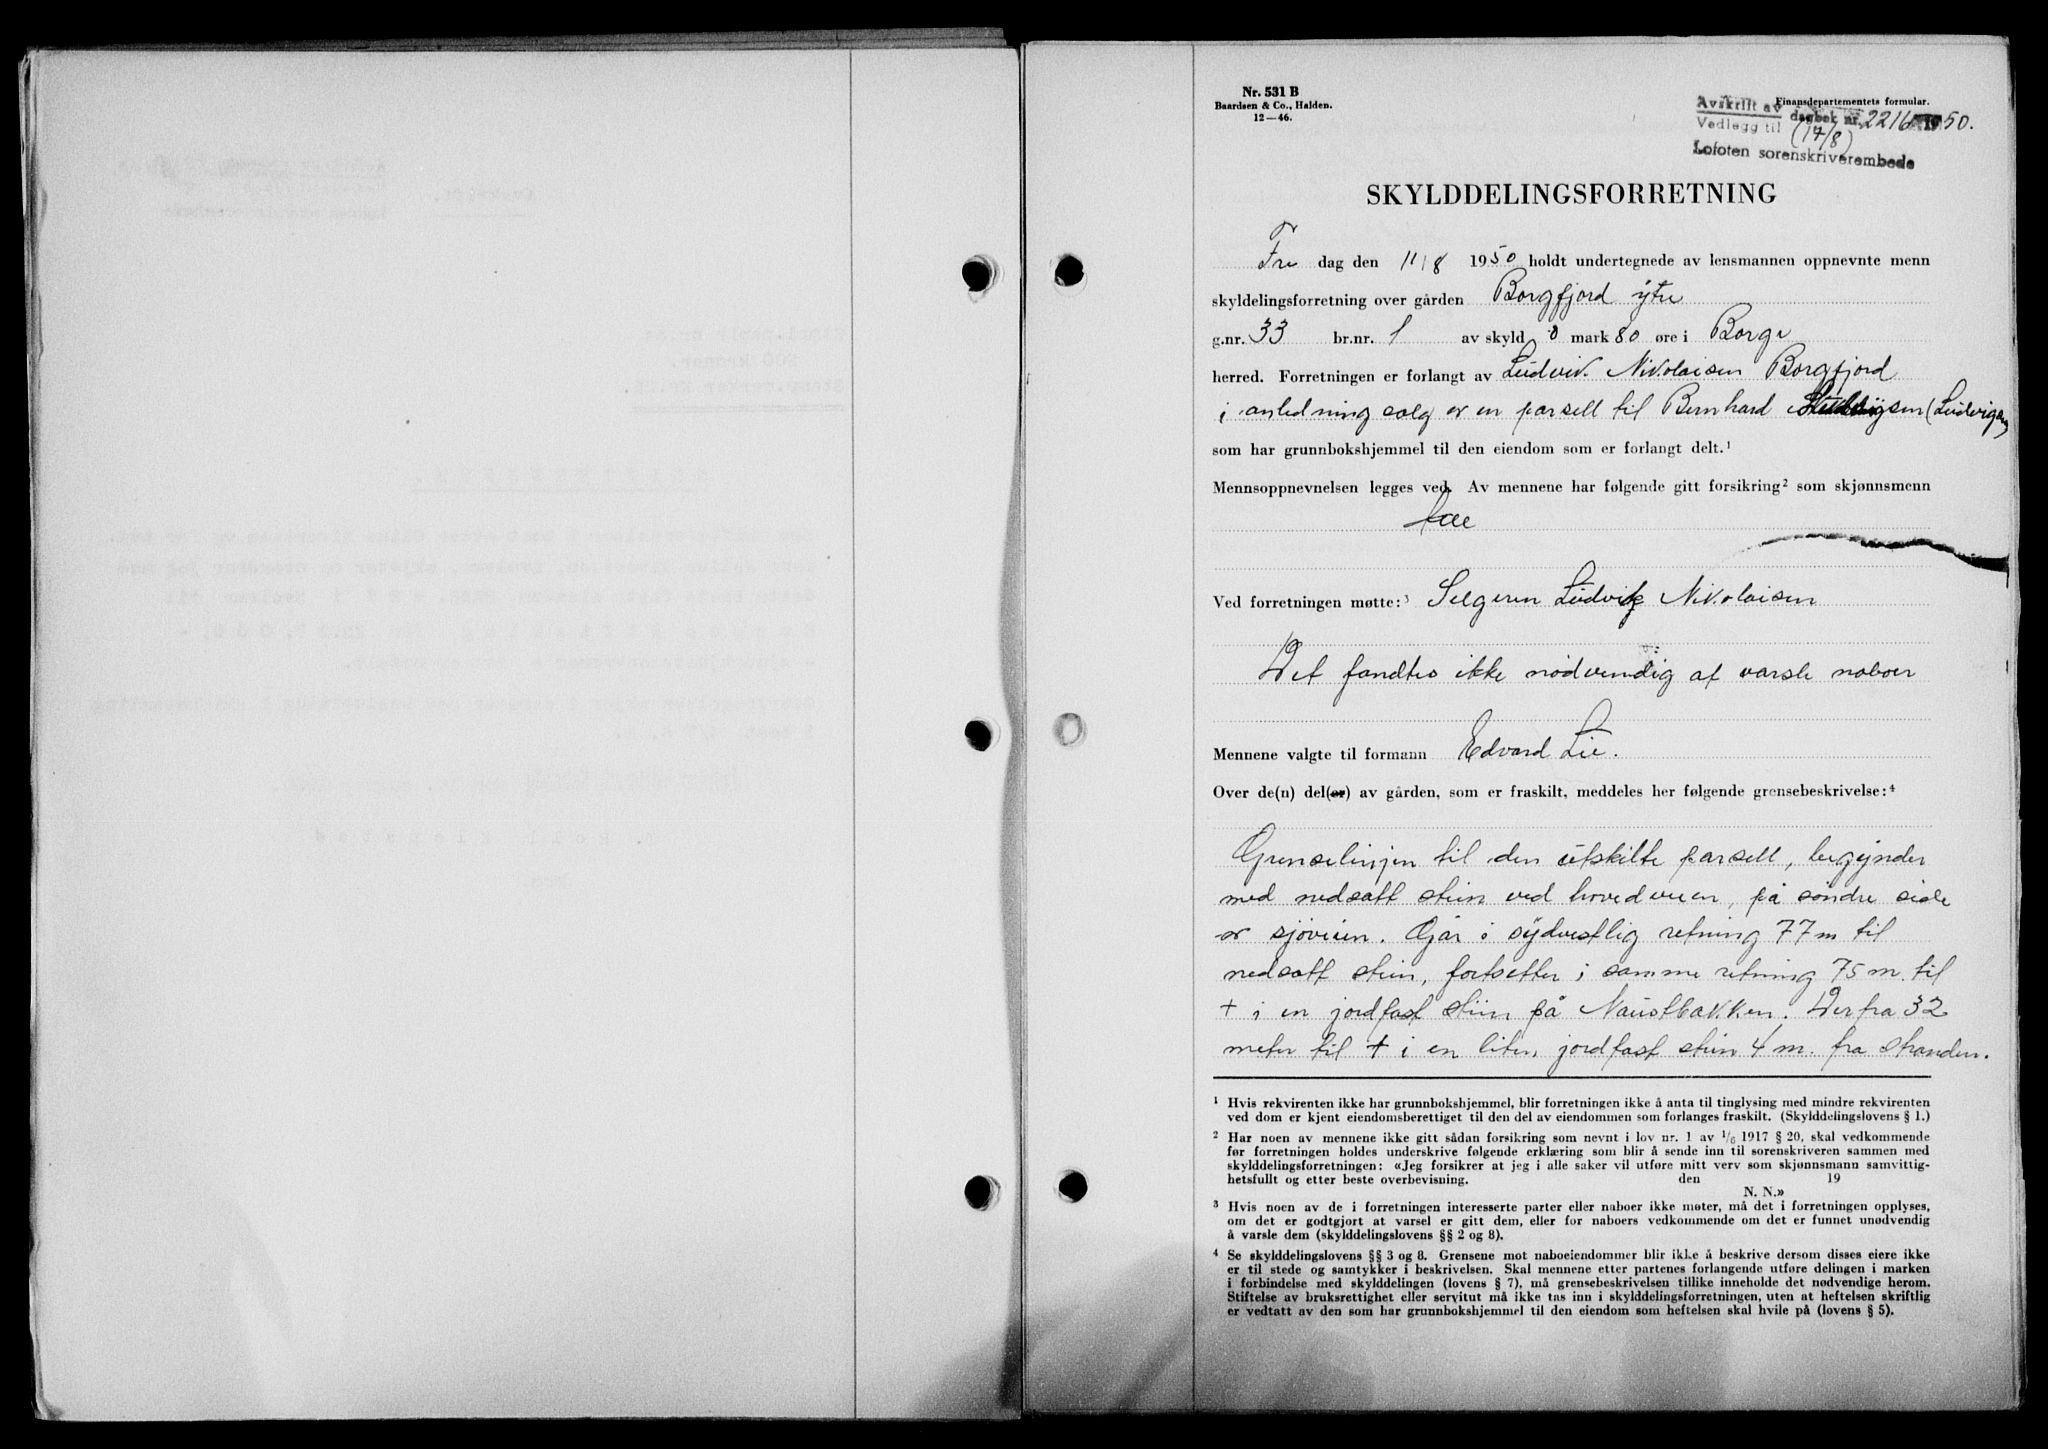 Nr. 531 B
Baardsen & Co., Halden.
12—46.
Finansdepartementets formular.
Avskrift av
Vedlegg til dagbok nr. 2216 1950.
(17/8)
Lofoten sorenskriverembede
SKYLDDELINGSFORRETNING
Fre dag den 11/8 1950 holdt undertegnede av lensmannen oppnevnte menn
skyldelingsforretning over gården Borgfjord ytre
g.nr. 33 br.nr. 1 av skyld 0 mark 80 øre i Borge
herred. Forretningen er forlangt av Ludvik Nikolaisen Borgfjord
i anledning salg av en parsell til Bernhard (Ludvigsen)
som har grunnbokshjemmel til den eiendom som er forlangt delt.¹
Mennsoppnevnelsen legges ved. Av mennene har følgende gitt forsikring² som skjønnsmenn
Ved forretningen møtte:³ Selgeren Ludvig Nikolaisen
Det fandtes ikke nødvendig at varsle naboer
Mennene valgte til formann Edvard Lie.
Over de(n) del(er) av gården, som er fraskilt, meddeles her følgende grensebeskrivelse:⁴
Grenselinjen til den utskilte parsell, begynder
med nedsatt stein ved hovedveien, på søndre side
av sjøveien. Går i sydvestlig retning 77 m til
nedsatt stein, fortsetter i samme retning 75 m. til
+ i en jordfast stein på Naustbakken. Derfra 32
meter til + i en liten jordfast stein 4 m. fra stranden.
¹ Hvis rekvirenten ikke har grunnbokshjemmel, blir forretningen ikke å anta til tinglysing med mindre rekvirenten
ved dom er kjent eiendomsberettiget til den del av eiendommen som forlanges fraskilt. (Skylddelingslovens § 1.)
² Har noen av mennene ikke gitt sådan forsikring som nevnt i lov nr. 1 av 1/6 1917 § 20, skal vedkommende
før forretningen holdes underskrive følgende erklæring som blir å sende inn til sorenskriveren sammen med
skylddelingsforretningen: «Jeg forsikrer at jeg i alle saker vil utføre mitt verv som skjønnsmann samvittig-
hetsfullt og etter beste overbevisning. den 19
N. N.»
³ Hvis noen av de i forretningen interesserte parter eller naboer ikke møter, må det i forretningen opplyses,
om det er godtgjort at varsel er gitt dem, eller for naboers vedkommende om det er funnet unødvendig
å varsle dem (skylddelingslovens §§ 2 og 8).
⁴ Se skylddelingslovens §§ 3 og 8. Grensene mot naboeiendommer blir ikke å beskrive dersom disses eiere ikke
er til stede og samtykker i beskrivelsen. Skal mennene etter partenes forlangende utføre delingen i marken
i forbindelse med skylddelingen (lovens § 7), må grensebeskrivelsen tillike inneholde det nødvendige herom.
Stiftelse av bruksrettighet eller servitut må ikke tas inn i skylddelingsforretningen, uten at heftelsen skriftlig
er vedtatt av den som har grunnbokshjemmel til den eiendom som heftelsen skal hvile på (lovens § 5).